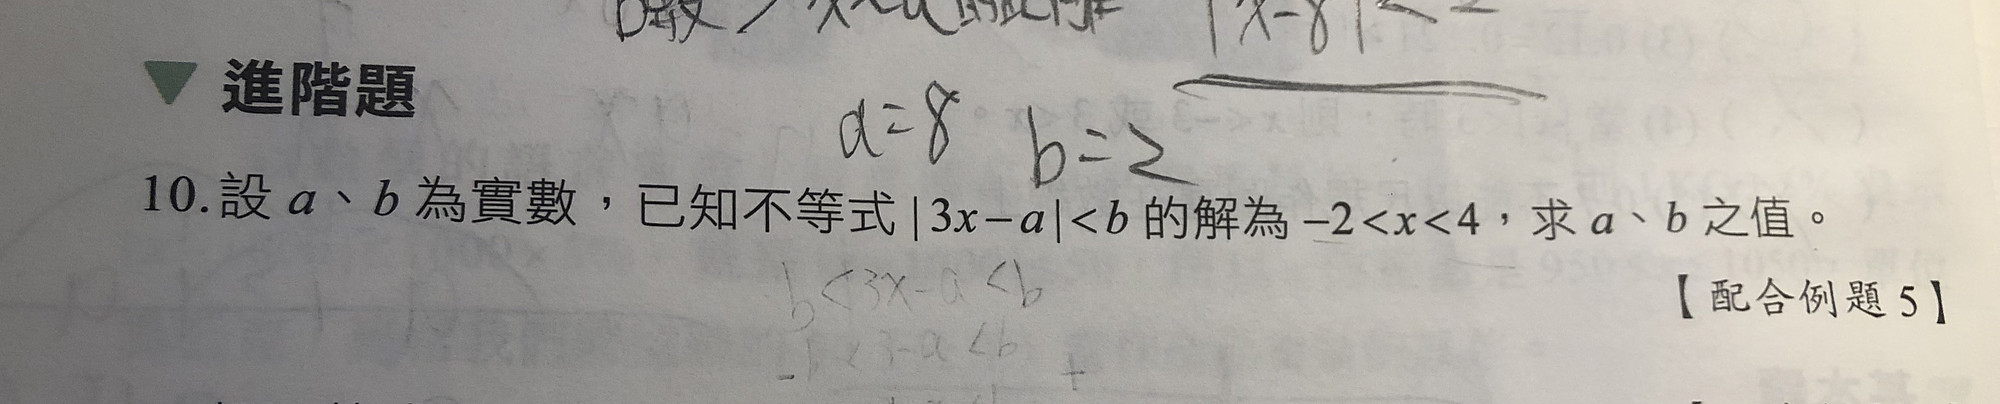 |x-8|<2
▼ 進階題
a=8 b=2
10.設 a、b 為實數，已知不等式 |3x－a|<b 的解為 －2<x<4，求 a、b 之值。
b<3x-a<b
【配合例題 5】